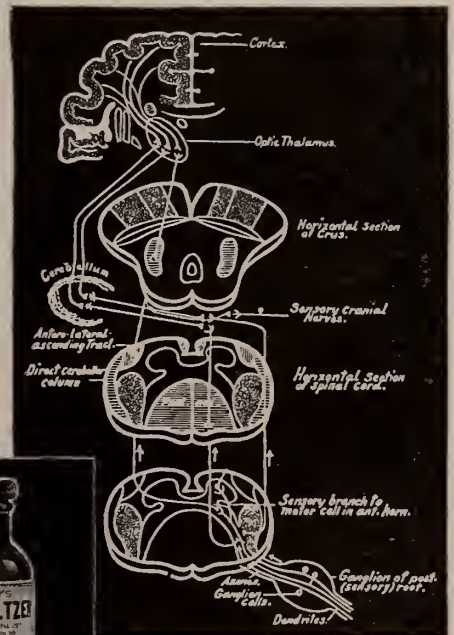 Cortex.
Optic Thalamus.
Horizontal Section
of Crus.
Cerebellum
Sensory Cranial
Nerves.
Antero-Lateral-
ascending Tract.
Direct Cerebellar
column
Horizontal Section
of Spinal Cord.
Sensory branch to
motor cell in ant. horn.
Axones.
Ganglion
cells.
Ganglion of post.
(sensory) root.
Dendrites.